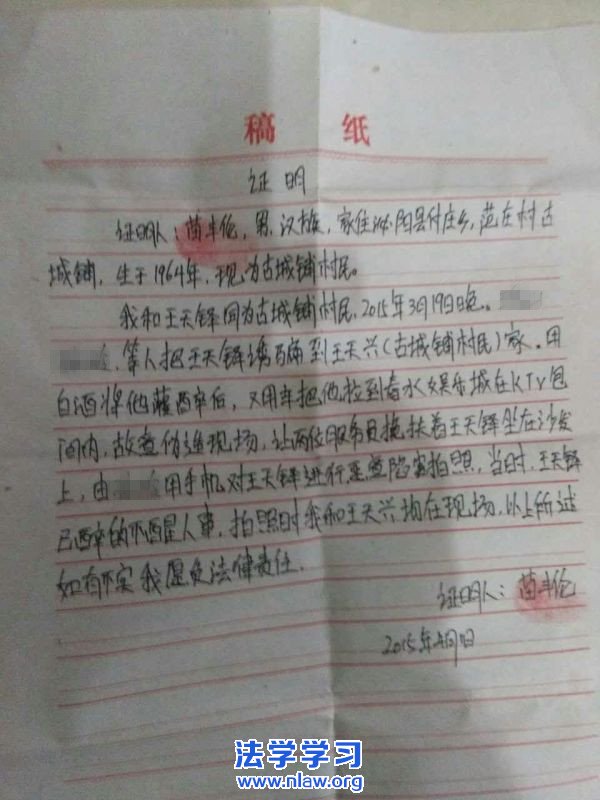 稿 纸
证 明
证明人：苗丰伦，男，汉族，家住泌阳县付庄乡，范庄村古
城铺，生于1964年，现为古城铺村民。
我和王天铎同为古城铺村民，2015年3月19日晚。
等人把王天铎诱骗到王天兴（古城铺村民）家。用
白酒将他灌醉后，又用车把他拉到春水娱乐城在KTV包
间内，故意伪造现场，让两位服务员搀扶着王天铎坐在沙发
上，由 用手机对王天铎进行恶意陷害拍照，当时，王天铎
已醉的不醒人事，拍照时我和王天兴均在现场，以上所述
如有不实我愿负法律责任.
证明人：苗丰伦
2015年4月1日
法学学习
www.nlaw.org